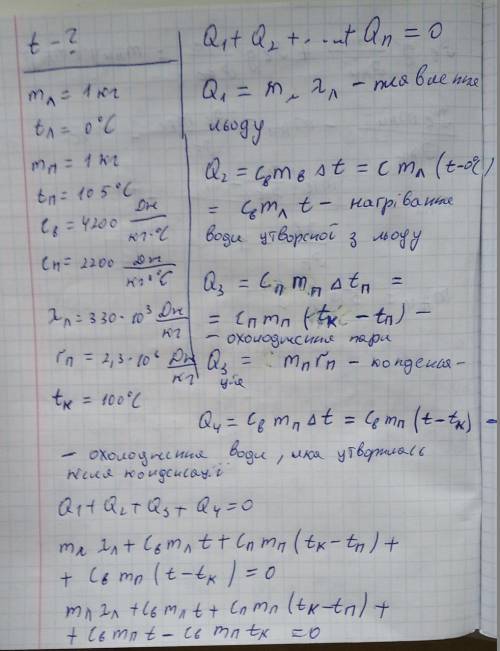 t - ?
mл = 1 кг
tл = 0°C
mп = 1 кг
tп = 105°C
cв = 4200 Дж/кг·°C
cп = 2200 Дж/кг·°C
λл = 330·10³ Дж/кг
rп = 2,3·10⁶ Дж/кг
tк = 100°C
Q₁ + Q₂ + ...+ Qп = 0
Q₁ = mл λл - плавлення
льоду
Q₂ = cв mв Δt = c mл (t-0°C)
= cв mл t - нагрівання
води утвореної з льоду
Q₃ = cп mп Δtп =
= cп mп (tк - tп) -
- охолодження пари
Q₃ = mп rп - конденса-
ція
Q₄ = cв mп Δt = cв mп (t-tк) -
- охолодження води, яка утворилась
після конденсації
Q₁ + Q₂ + Q₃ + Q₄ = 0
mл λл + cв mл t + cп mп (tк - tп) +
+ cв mп (t - tк) = 0
mл λл + cв mл t + cп mп (tк - tп) +
+ cв mп t - cв mп tк = 0